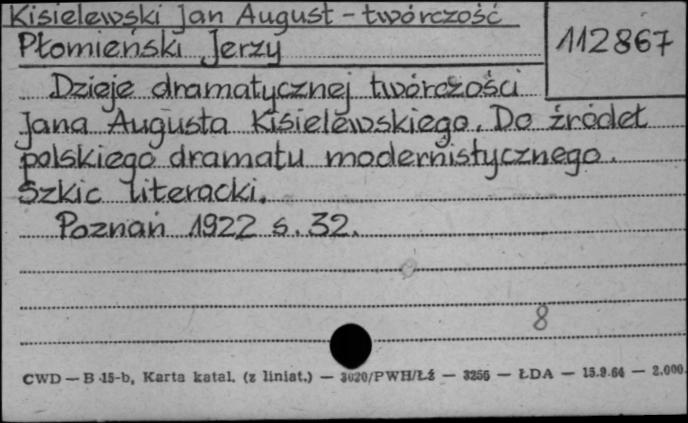 Kisielewski Jan August - twórczość
Płomieński Jerzy
112867
Dzieje dramatycznej twórczości
Jana Augusta Kisielewskiego. Do źródeł
polskiego dramatu modernistycznego.
Szkic literacki.
Poznań 1922 s. 32.
8
CWD — B-15-b, Karta katal. (z liniat.) — 3020/PWH/Łź — 3256 — ŁDA — 15.9.64 — 2.000.